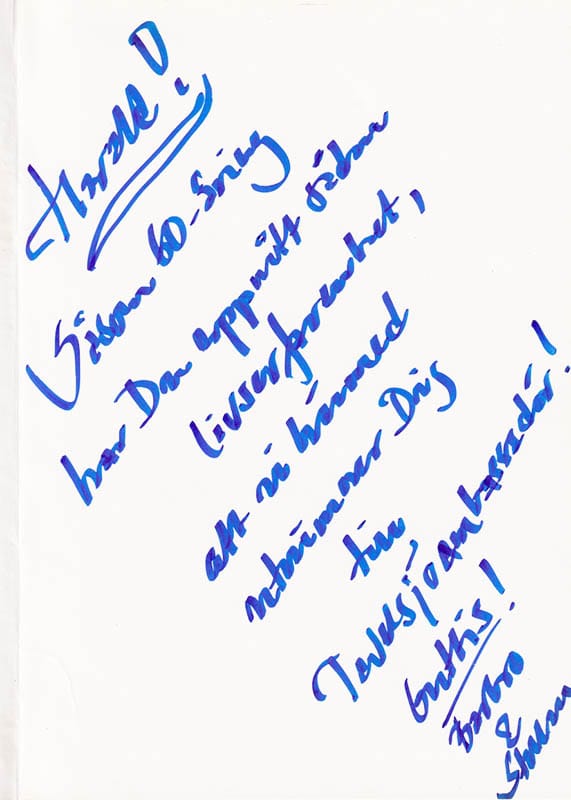 Harald!
Såsom 60-åring
har Du uppnått sådan
livserfarenhet,
att vi härmed
utnämner Dig
till
Tavelsjöambassadör!
Grattis!
Barbro
&